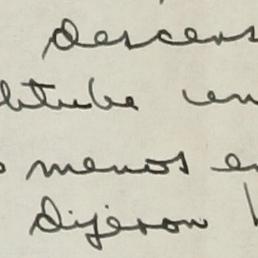 descens
btube un
o menos en
dijeron